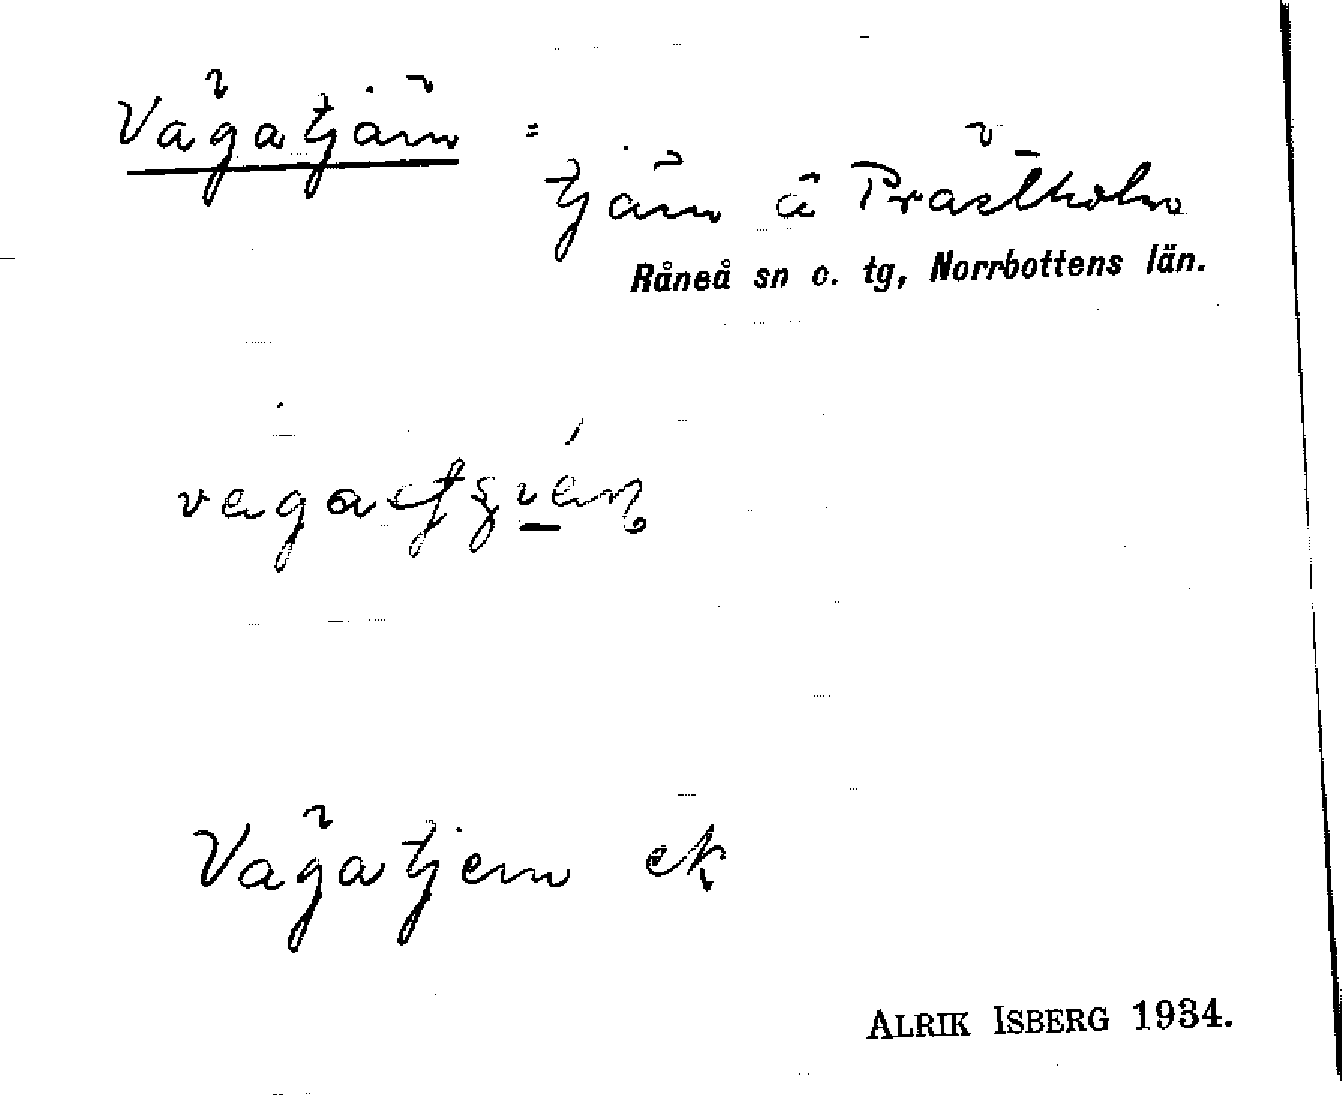 Vägatjärn =
tjärn å Prästholm
Råneå sn o. tg, Norrbottens län.
Vägatjern ek
ALRIK ISBERG 1934.